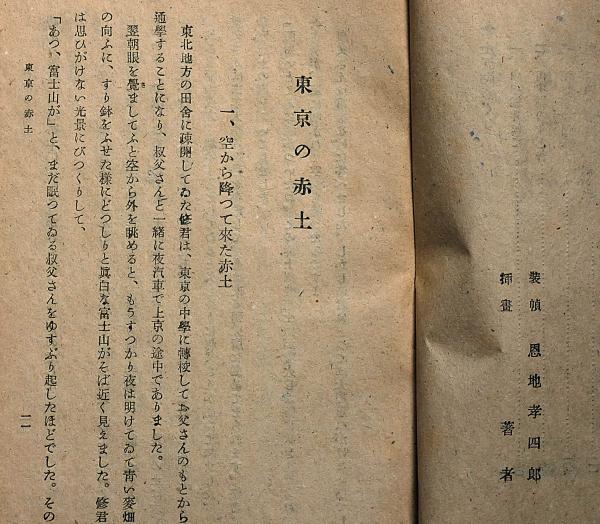 裝幀 恩地孝四郎
挿畫 著者
東京の赤土
一、空から降つて來た赤土
東北地方の田舍に疎開してゐた修君は、東京の中學に轉校してお父さんのもとから
通學することになり、叔父さんと一緒に夜汽車で上京の途中でありました。
翌朝眼を覺ましてふと空から外を眺めると、もうすつかり夜は明けてゐて靑い麥畑
の向ふに、すり鉢をふせた樣にどつしりと眞白な富士山がそば近く見えました。修君
は思ひがけない光景にびつくりして、
「あつ、富士山が」と、まだ眠つてゐる叔父さんをゆすぶり起したほどでした。その
東京の赤土
一一